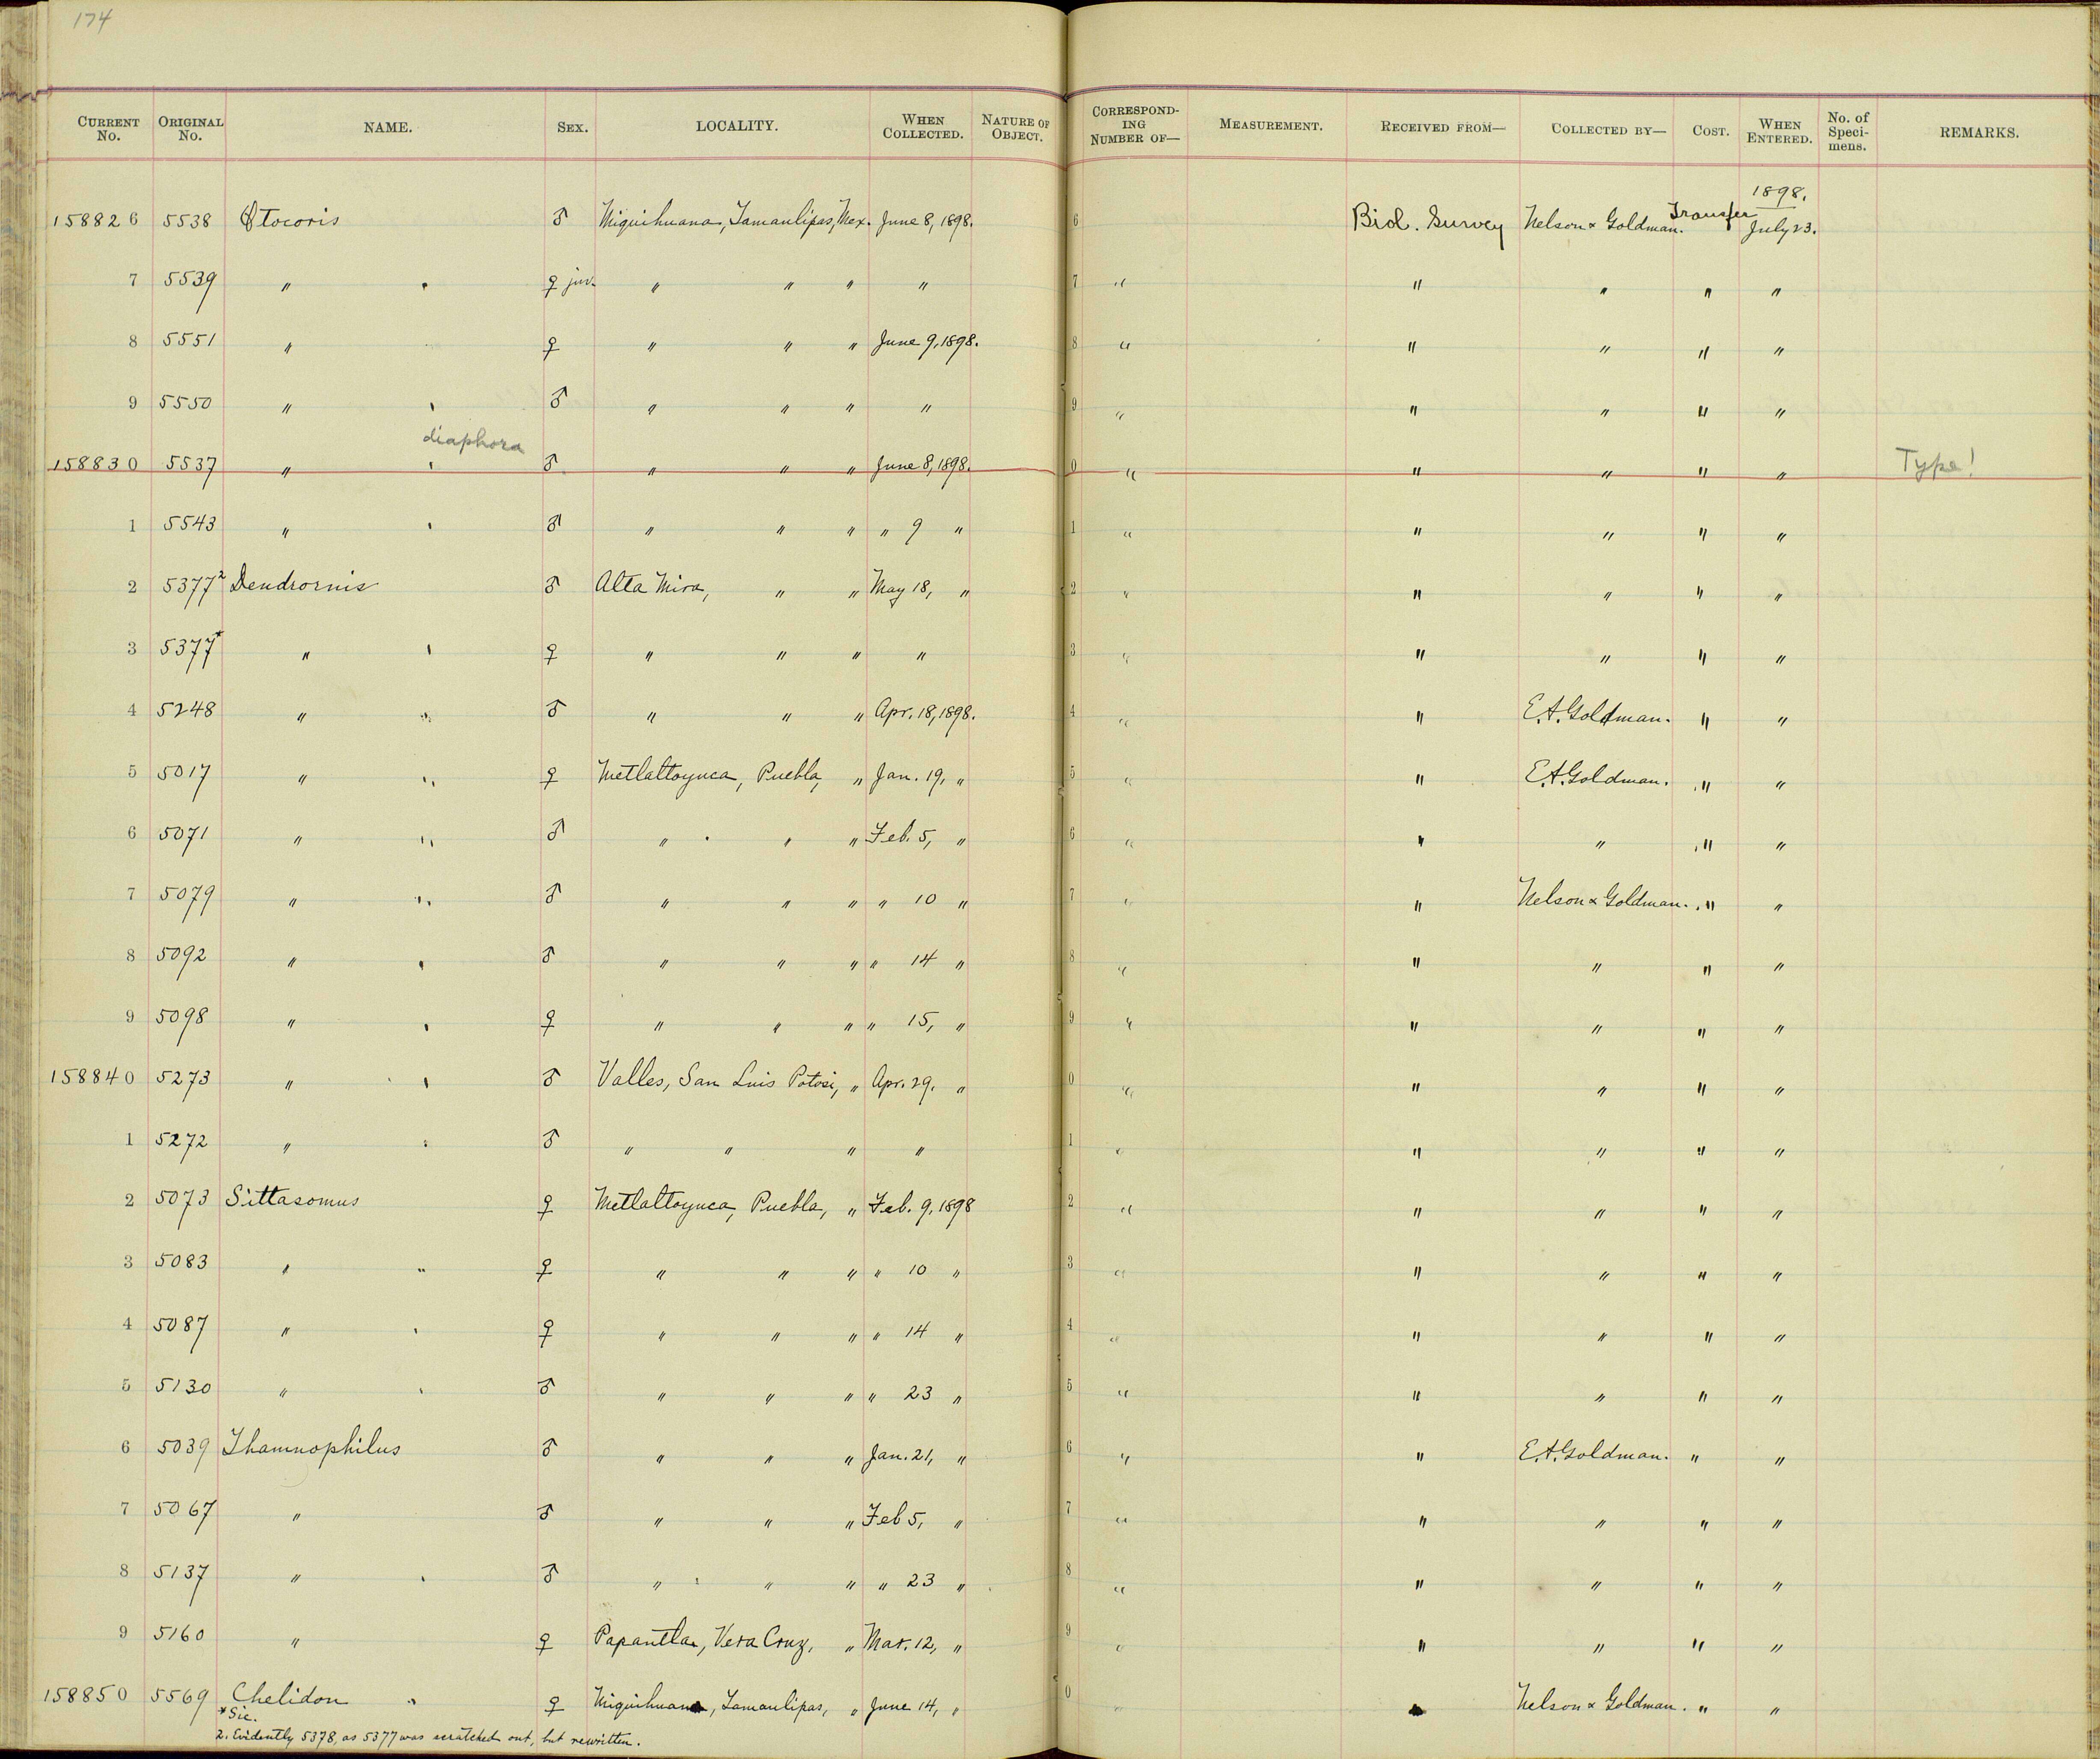 174
CURRENT No. ORIGINAL No. NAME. SEX. LOCALITY. WHEN COLLECTED. NATURE OF OBJECT. CORRESPONDING NUMBER OF— MEASUREMENT. RECEIVED FROM— COLLECTED BY— COST. WHEN ENTERED. No. of Specimens. REMARKS.
1898.
158826 5538 Otocoris ♂ Miquihuana, Tamaulipas, Mex. June 8, 1898. 6 Biol. Survey Nelson & Goldman. Transfer July 23.
7 5539 " " ♀ juv. " " " " 7 " " " " "
8 5551 " ♀ " " " June 9, 1898. 8 " " " " "
9 5550 " ♂ " " " " 9 " " " " "
diaphora
158830 5537 " ♂ " " " June 8, 1898. 0 " " " " " Type!
1 5543 " ♂ " " " " 9 " 1 " " " " "
2 5377² Dendrornis ♂ Alta Mira, " " May 18, " 2 " " " " "
3 5377* " ♀ " " " " 3 " " " " "
4 5248 " " ♂ " " " Apr. 18, 1898. 4 " " E.A. Goldman. " "
5 5017 " " ♀ Metlaltoyuca, Puebla, " Jan. 19, " 5 " " E.A. Goldman. " "
6 5071 " " ♂ " " " Feb. 5, " 6 " " " " "
7 5079 " " ♂ " " " " 10 " 7 " " Nelson & Goldman. " "
8 5092 " ♂ " " " " 14 " 8 " " " " "
9 5098 " ♀ " " " " 15, " 9 " " " " "
158840 5273 " ♂ Valles, San Luis Potosi, " Apr. 29. " 0 " " " " "
1 5272 " ♂ " " " " 1 " " " " "
2 5073 Sittasomus ♀ Metlaltoyuca, Puebla, " Feb. 9, 1898 2 " " " " "
3 5083 " " ♀ " " " " 10 " 3 " " " " "
4 5087 " ♀ " " " " 14 " 4 " " " " "
5 5130 " ♂ " " " " 23 " 5 " " " " "
6 5039 Thamnophilus ♂ " " " Jan. 21, " 6 " " E.A. Goldman. " "
7 5067 " ♂ " " " Feb 5, " 7 " " " " "
8 5137 " ♂ " " " " 23 " 8 " " " " "
9 5160 " ♀ Papantla, Vera Cruz, " Mar. 12, " 9 " " " " "
158850 5569 Chelidon " ♀ Miquihuana, Tamaulipas, " June 14, " 0 " " Nelson & Goldman. " "
*Sic.
2. Evidently 5378, as 5377 was scratched out, but rewritten.